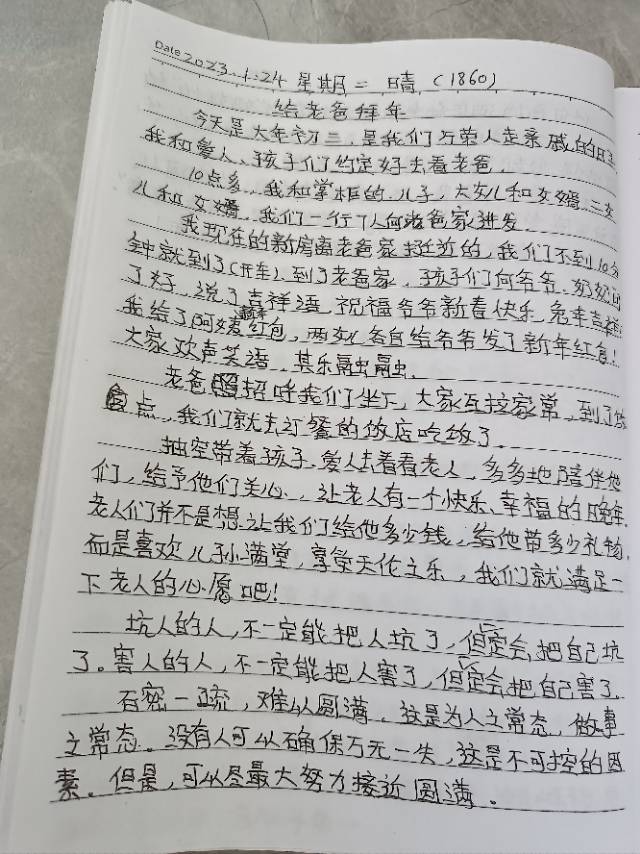 Date 2023.1.24 星期二 晴 (1860)
给老爸拜年
今天是大年初三,是我们万荣人走亲戚的日子
我和爱人、孩子们约定好去看老爸。
10点多,我和掌柜的、儿子,大女儿和女婿、二女
儿和女婿,我们一行7人向老爸家进发。
我现在的新房离老爸家挺近的,我们不到10分
钟就到了(开车)。到了老爸家,孩子们向爷爷、奶奶问
了好,说了吉祥语,祝福爷爷新春快乐,兔年吉祥!
我给了阿姨红包,两女儿各自给爷爷发了新年红包!
大家欢声笑语,其乐融融。
老爸招呼我们坐下,大家互拉家常,到了饭
点,我们就去订餐的饭店吃饭了。
抽空带着孩子、爱人去看看老人,多多地陪伴他
们,给予他们关心,让老人有一个快乐、幸福的晚年。
老人们并不是想让我们给他多少钱,给他带多少礼物,
而是喜欢儿孙满堂,享受天伦之乐,我们就满足一
下老人的心愿吧!
坑人的人,不一定能把人坑了,但定会把自己坑
了。害人的人,不一定能把人害了,但定会把自己害了。
百密一疏,难以圆满。这是为人之常态,做事
之常态。没有人可以确保万无一失,这是不可控的因
素。但是,可以尽最大努力接近圆满。